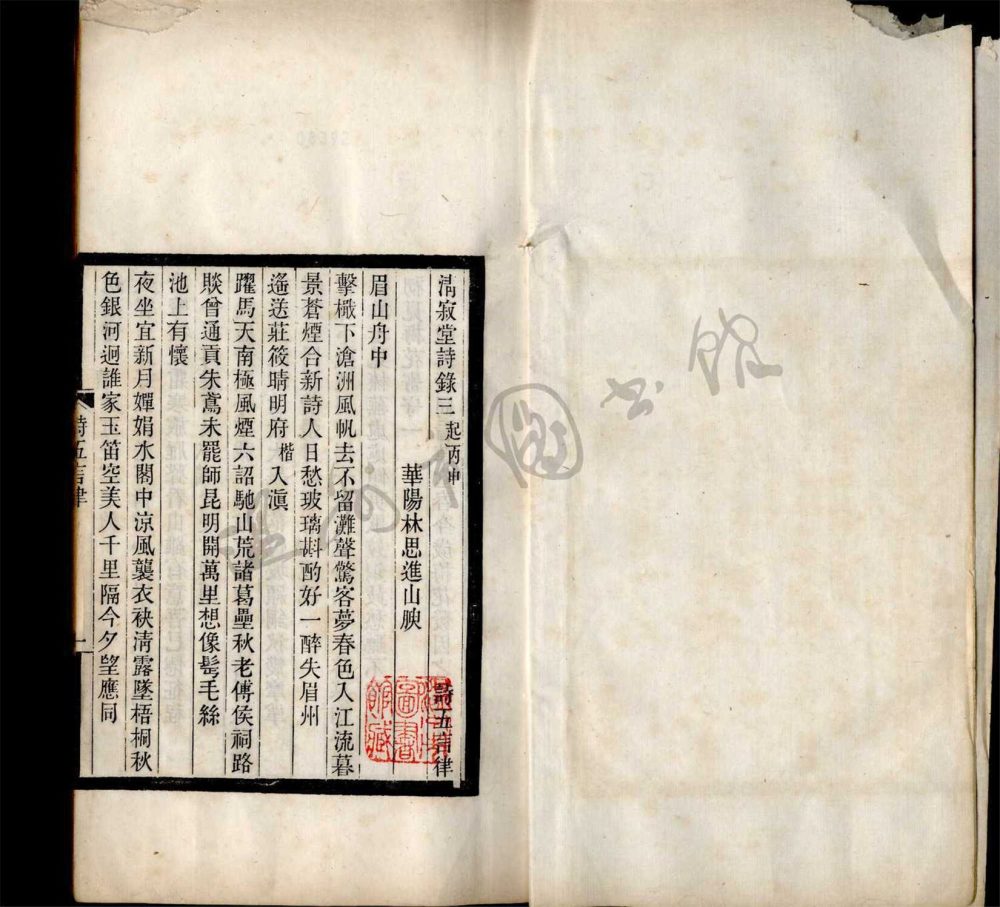 清寂堂詩錄三 起丙申 詩五言律
華陽林思進山腴
眉山舟中
擊檝下滄洲風帆去不留灘聲驚客夢春色入江流暮
景蒼煙合新詩人日愁玻璃斟酌好一醉失眉州
遙送莊筱晴明府楷入滇
躍馬天南極風煙六詔馳山荒諸葛壘秋老傅侯祠路
賧曾通貢朱鳶未罷師昆明開萬里想像髩毛絲
池上有懷
夜坐宜新月嬋娟水閣中涼風襲衣袂清露墜梧桐秋
色銀河迥誰家玉笛空美人千里隔今夕望應同
詩五言律
一
圖書
館藏